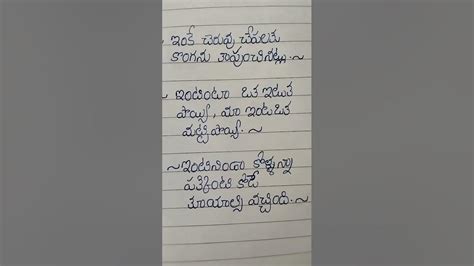 ఇంకే చెరువు చేపలకు
కొంగను కాపుంచినట్లు. ~
~ ఇంటింటా ఒక ఇటుక
పొయ్యి, మా ఇంట ఒక
మట్టి పొయ్యి. ~
~ ఇంటినిండా కోళ్ళున్నా
పక్కింటి కోడే
కూయాల్సి వచ్చింది. ~